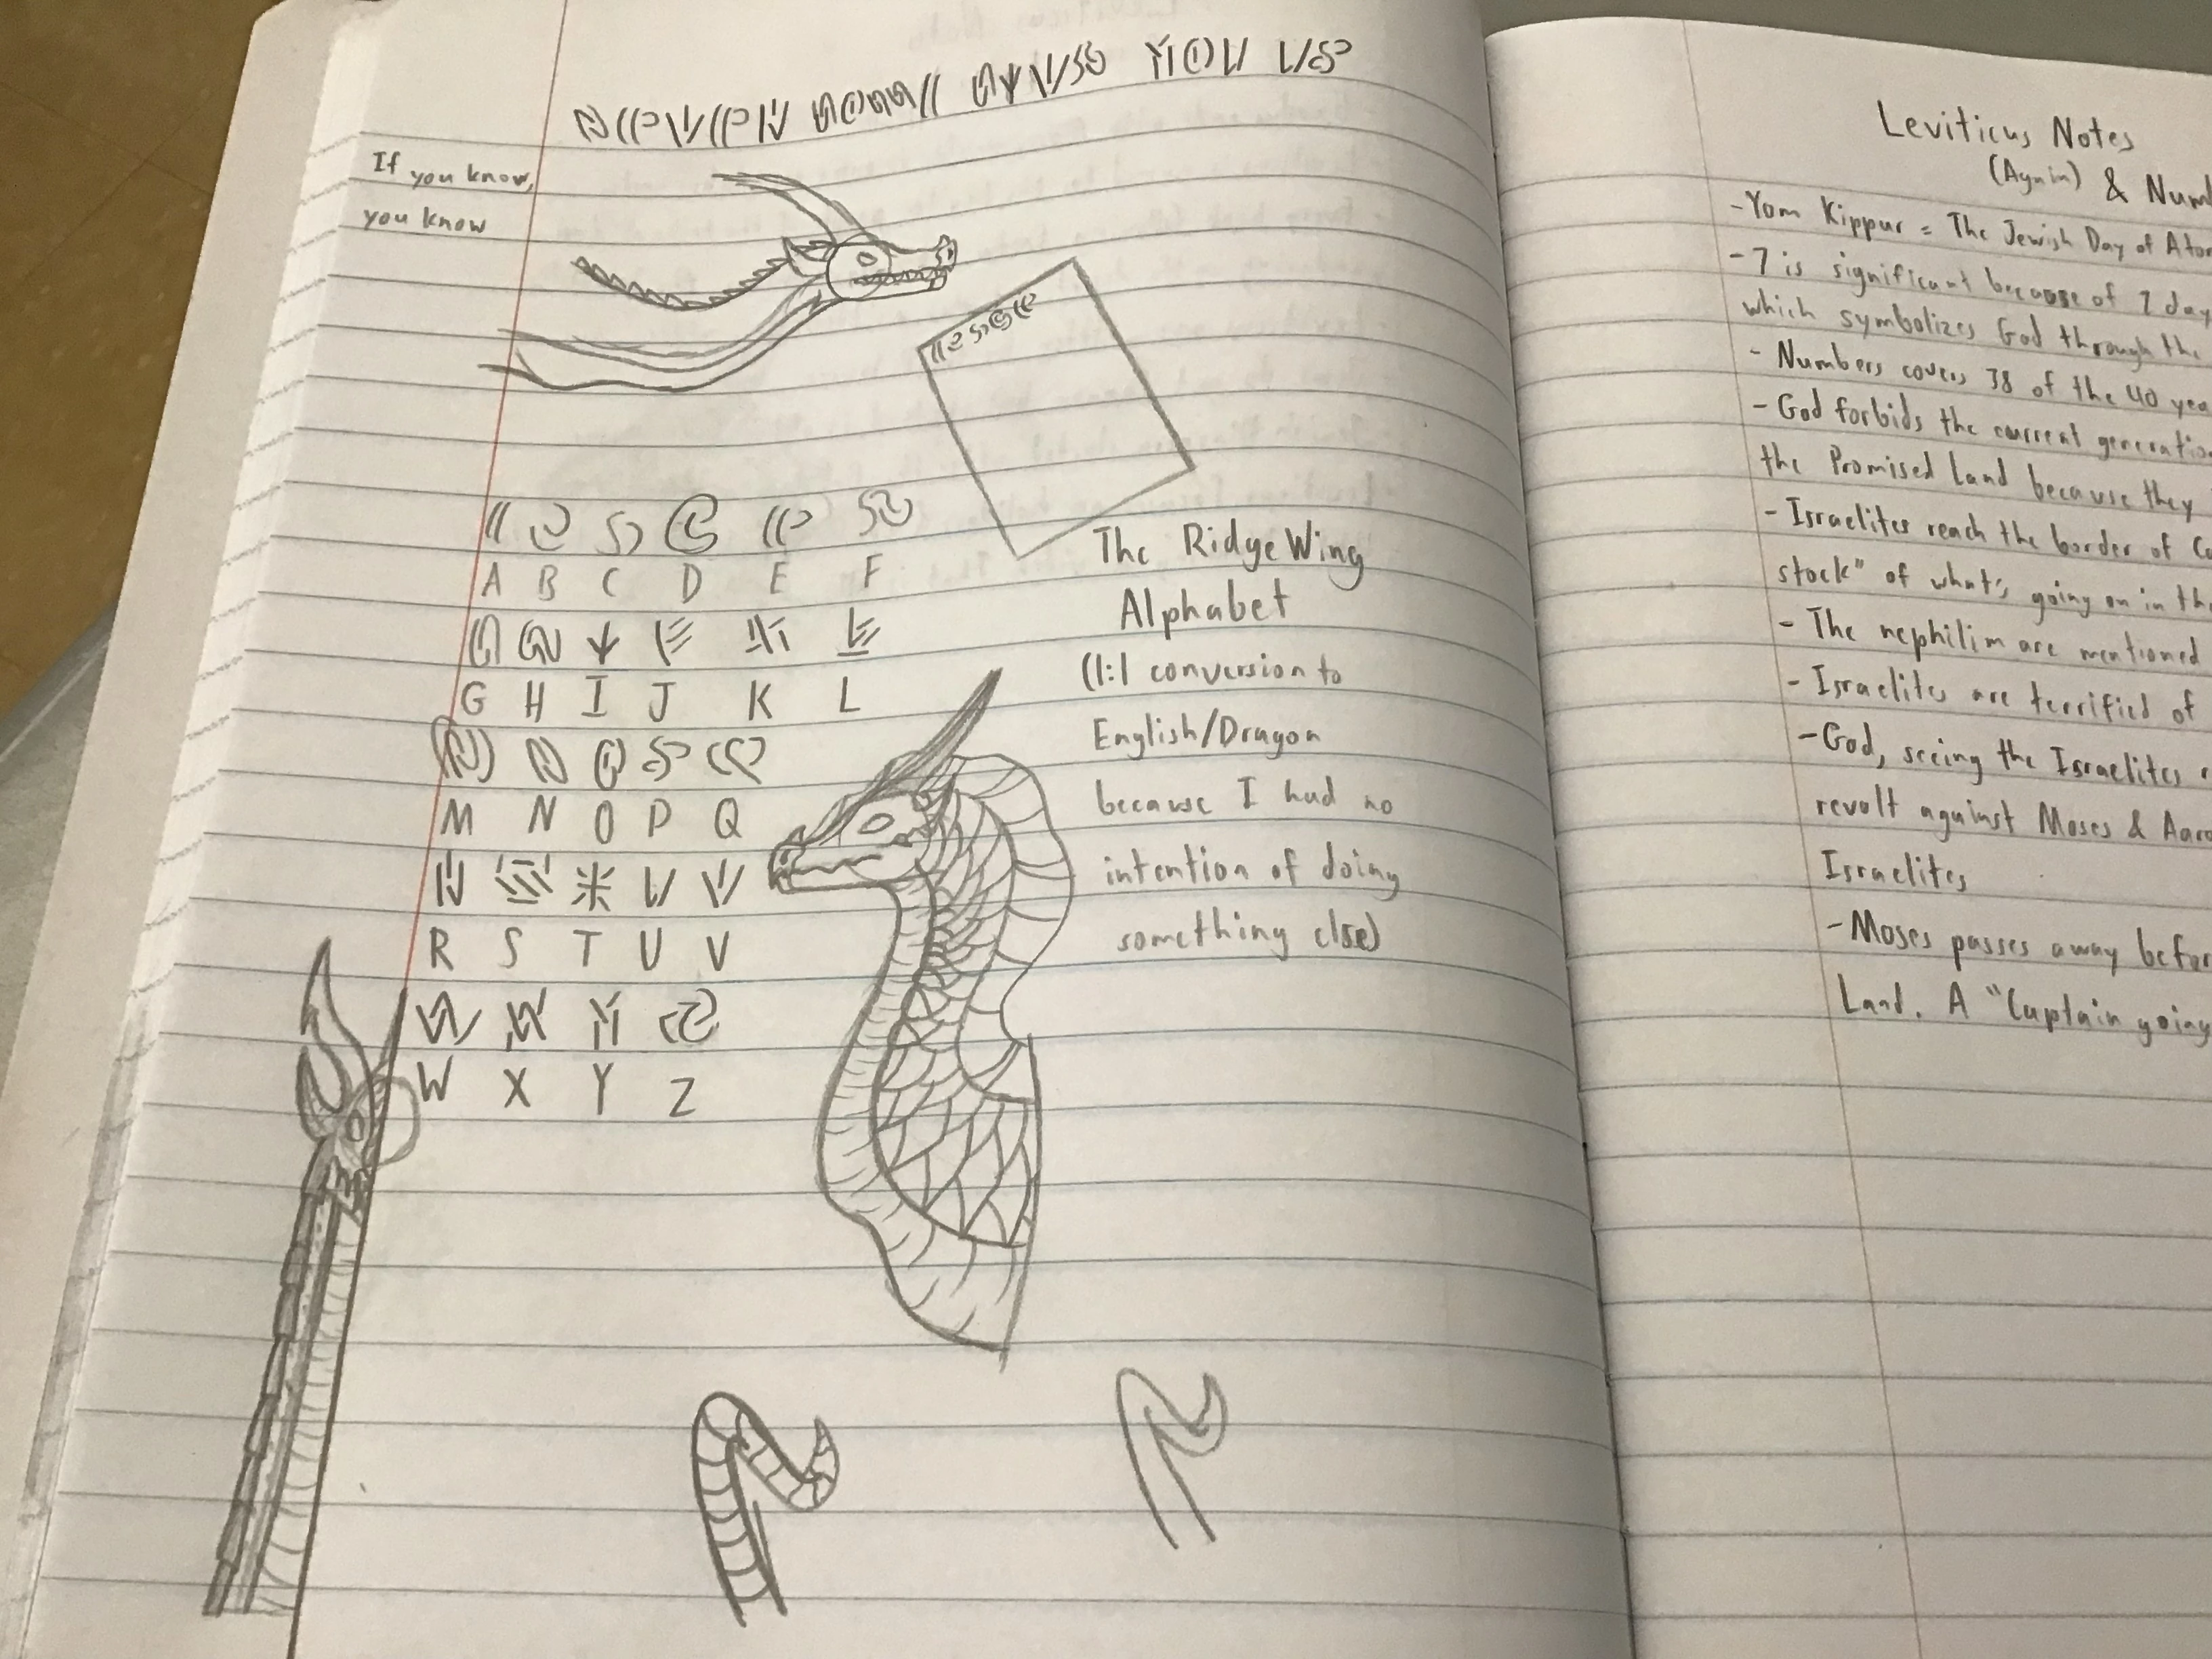 If you know,
you know
The RidgeWing
Alphabet
(1:1 conversion to
English/Dragon
because I had no
intention of doing
something else)
A B C D E F
G H I J K L
M N O P Q
R S T U V
W X Y Z
Leviticus Notes
(Again) & Num
-Yom Kippur = The Jewish Day of Aton
-7 is significant because of 7 day
which symbolizes God through the
- Numbers covers 38 of the 40 yea
- God forbids the current generation
the Promised Land because they
- Israelites reach the border of Ca
stock" of what's going on in the
- The nephilim are mentioned
- Israelites are terrified of
-God, seeing the Israelites r
revolt against Moses & Aaro
Israelites
-Moses passes away befor
Land. A "Captain going